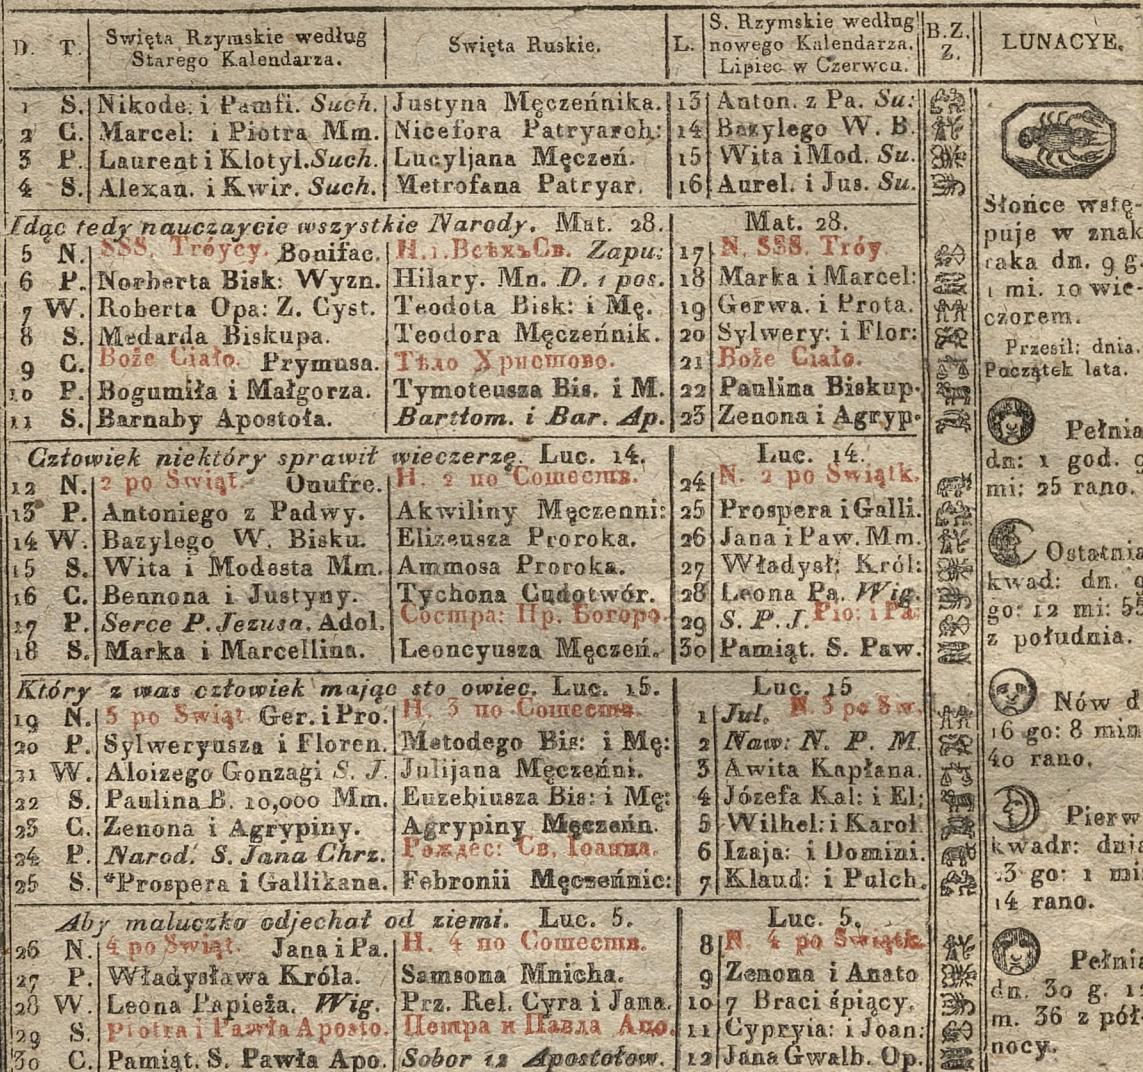 D. T. Swięta Rzymskie według Starego Kalendarza. Swięta Ruskie. L. S. Rzymskie według nowego Kalendarza. Lipiec w Czerwcu. B.Z. Z. LUNACYE.
1 S. Nikode. i Pamfi. Such. Justyna Męczeńnika. 13 Anton. z Pa. Su:
2 C. Marcel: i Piotra Mm. Nicefora Patryarch: 14 Bazylego W. B.
3 P. Laurent i Klotyl. Such. Lucyljana Męczeń. 15 Wita i Mod. Su.
4 S. Alexan. i Kwir. Such. Metrofana Patryar. 16 Aurel. i Jus. Su.
Idąc tedy nauczaycie wszystkie Narody. Mat. 28. Mat. 28.
5 N. SSS. Tróycy. Bonifac. Н. 1. Всѣхъ Св. Zapu: 17 N. SSS. Tróy.
6 P. Norberta Bisk: Wyzn. Hilary. Mn. D. 1 pos. 18 Marka i Marcel:
7 W. Roberta Opa: Z. Cyst. Teodota Bisk: i Mę. 19 Gerwa. i Prota.
8 S. Medarda Biskupa. Teodora Męczeńnik. 20 Sylwery: i Flor:
9 C. Boże Ciało. Prymusa. Тѣло Христово. 21 Boże Ciało.
10 P. Bogumiła i Małgorza. Tymoteusza Bis. i M. 22 Paulina Biskup.
11 S. Barnaby Apostoła. Bartłom. i Bar. Ap. 23 Zenona i Agryp.
Człowiek niektóry sprawił wieczerzę. Luc. 14. Luc. 14.
12 N. 2 po Swiąt. Onufre. Н. 2 по Сошеств. 24 N. 2 po Swiątk.
13 P. Antoniego z Padwy. Akwiliny Męczenni: 25 Prospera i Galli.
14 W. Bazylego W. Bisku. Elizeusza Proroka. 26 Jana i Paw. Mm.
15 S. Wita i Modesta Mm. Ammosa Proroka. 27 Władysł: Król:
16 C. Bennona i Justyny. Tychona Cudotwór. 28 Leona Pa. Wig.
17 P. Serce P. Jezusa. Adol. Состра: Пр. Богоро. 29 S. P. J. Pio: i Pa.
18 S. Marka i Marcellina. Leoncyusza Męczeń. 30 Pamiąt. S. Paw.
Który z was człowiek mając sto owiec. Luc. 15. Luc. 15
19 N. 3 po Swiąt. Ger. i Pro. Н. 3 по Сошеств. 1 Jul. N. 3 po Sw.
20 P. Sylweryusza i Floren. Metodego Bis: i Mę: 2 Naw: N. P. M.
21 W. Aloizego Gonzagi S. J. Julijana Męczeńni. 3 Awita Kapłana.
22 S. Paulina B. 10,000 Mm. Euzebiusza Bis: i Mę: 4 Józefa Kal: i El;
23 C. Zenona i Agrypiny. Agrypiny Męczeńn. 5 Wilhel: i Karol.
24 P. Narod. S. Jana Chrz. Рождес: Св. Іоанна. 6 Izaja: i Domini.
25 S. *Prospera i Gallikana. Febronii Męczeńnic: 7 Klaud: i Pulch.
Aby maluczko odjechał od ziemi. Luc. 5. Luc. 5.
26 N. 4 po Swiąt. Jana i Pa. Н. 4 по Сошеств. 8 N. 4 po Swiątk.
27 P. Władysława Króla. Samsona Mnicha. 9 Zenona i Anato
28 W. Leona Papieża. Wig. Prz. Rel. Cyra i Jana. 10 7 Braci śpiący.
29 S. Piotra i Pawła Aposto. Петра и Павла Апо. 11 Cypryia: i Joan:
30 C. Pamiąt. S. Pawła Apo. Sobor 12 Apostołow. 12 Jana Gwalb. Op.
Słońce wstę-
puje w znak
raka dn. 9 g.
1 mi. 10 wie-
czorem.
Przesil: dnia.
Początek lata.
Pełnia
dn: 1 god. 9
mi: 25 rano.
Ostatnia
kwad: dn. 9
go: 12 mi: 55
z południa.
Nów d
16 go: 8 min
40 rano.
Pierw
kwadr: dnia
23 go: 1 mi
14 rano.
Pełnia
dn. 30 g. 11
m. 36 z pół-
nocy.